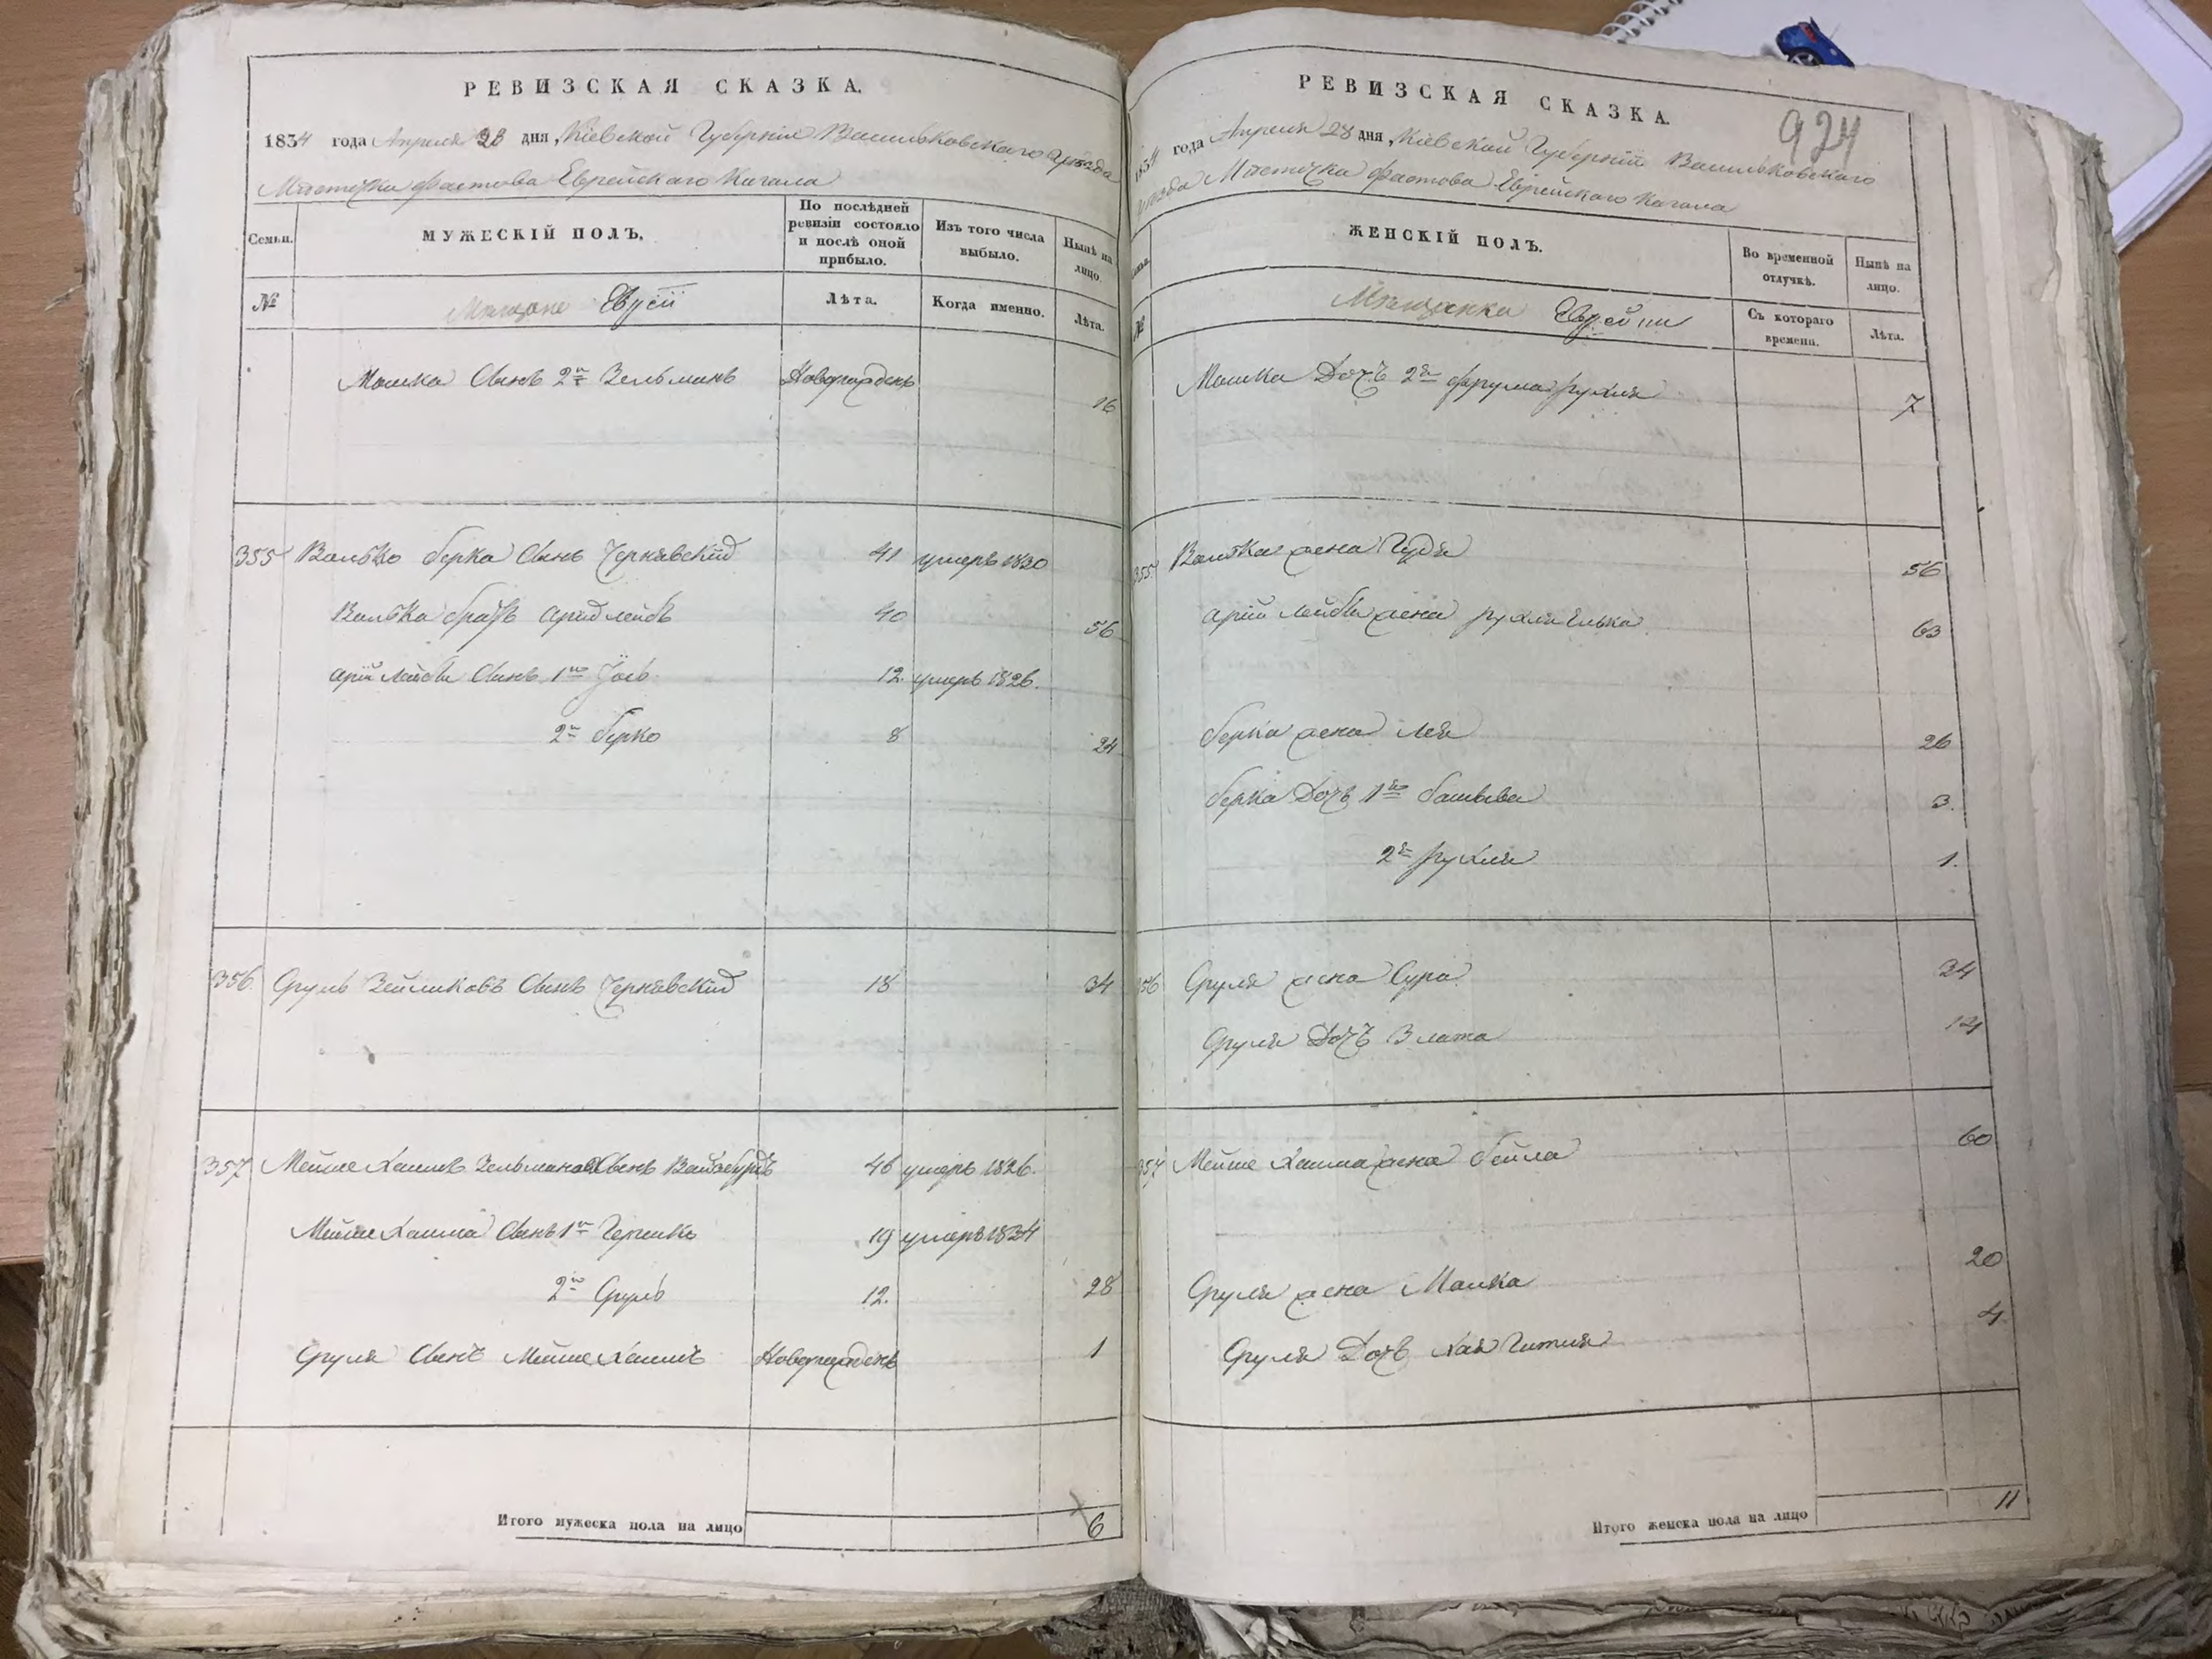 РЕВИЗСКАЯ СКАЗКА.
1834 года Апреля 28 дня, Кіевской Губерніи Васильковскаго Уѣзда
Мѣстечка Фастова Еврейскаго Кагала
Семьи.
МУЖЕСКІЙ ПОЛЪ.
По послѣдней ревизіи состояло и послѣ оной прибыло.
Изъ того числа выбыло.
Нынѣ на лицо.
№
Мѣщане Евреи
Лѣта.
Когда именно.
Лѣта.
Мошка Сынъ 2й Зельманъ Новорожденъ 16
355 Волько Берка Сынъ Чернявскій 41 умеръ 1830
Волька братъ Арій Лейбъ 40 56
Арій Лейбы Сынъ 1й 12. умеръ 1826.
2й Берко 8 24
356. Сруль Зейликовъ Сынъ Чернявскій 18 34
357 Мейше Хаимъ Зельмановъ Сынъ 46 умеръ 1826.
Мейше Хаима Сынъ 1й Гершко 19 умеръ 1834
2й Сруль 12. 28
Сруля Сынъ Мейше Хаимъ Новорожденъ 1
Итого мужеска пола на лицо 6
РЕВИЗСКАЯ СКАЗКА.
924
1834 года Апреля 28 дня, Кіевской Губерніи Васильковскаго
Уѣзда Мѣстечка Фастова Еврейскаго Кагала
ЖЕНСКІЙ ПОЛЪ.
Во временной отлучкѣ.
Нынѣ на лицо.
№
Мѣщанки Еврейки
Съ котораго времени.
Лѣта.
Мошка Дочь 2я Фрума Рухля 7
355 Волька жена Гудя 56
Арій Лейбы жена Рухля Елька 63
Берка жена Лея 26
Берка Дочь 1я Башева 3.
2я Рухля 1.
356 Сруля жена Сура 34
Сруля Дочь Злата 14
357 Мейше Хаима жена Бейла 60
Сруля жена Малка 20
Сруля Дочь Хая Гитля 4
Итого женска пола на лицо 11